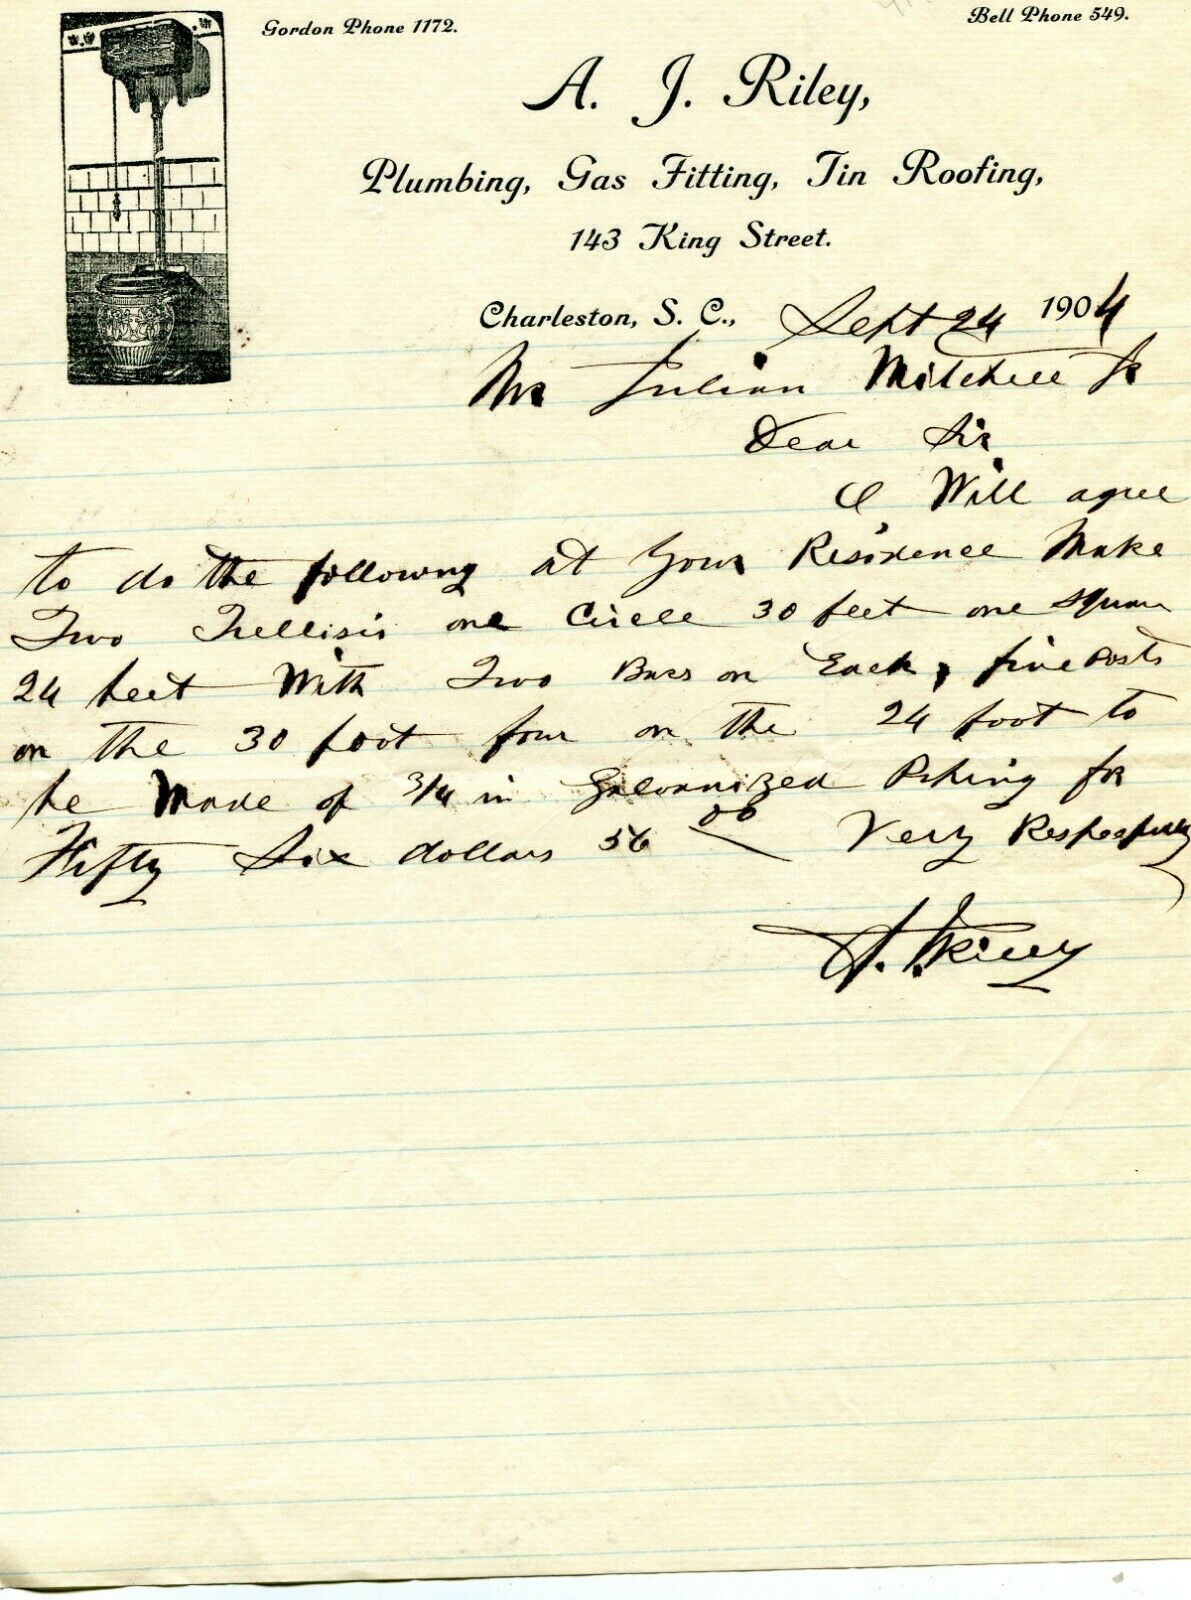 Gordon Phone 1172.
Bell Phone 549.
A. J. Riley,
Plumbing, Gas Fitting, Tin Roofing,
143 King Street.
Charleston, S. C., Sept 24 1904
Mr Julian Mitchell Jr
Dear Sir
I Will agree
to do the following at Your Residence Make
Two Trellisis one Circle 30 feet one square
24 feet With Two Bars on Each, five Posts
on the 30 foot four on the 24 foot to
be Made of 3/4 in Galvanized Piping for
Fifty Six dollars 56 00 Very Respectfully
A. J. Riley